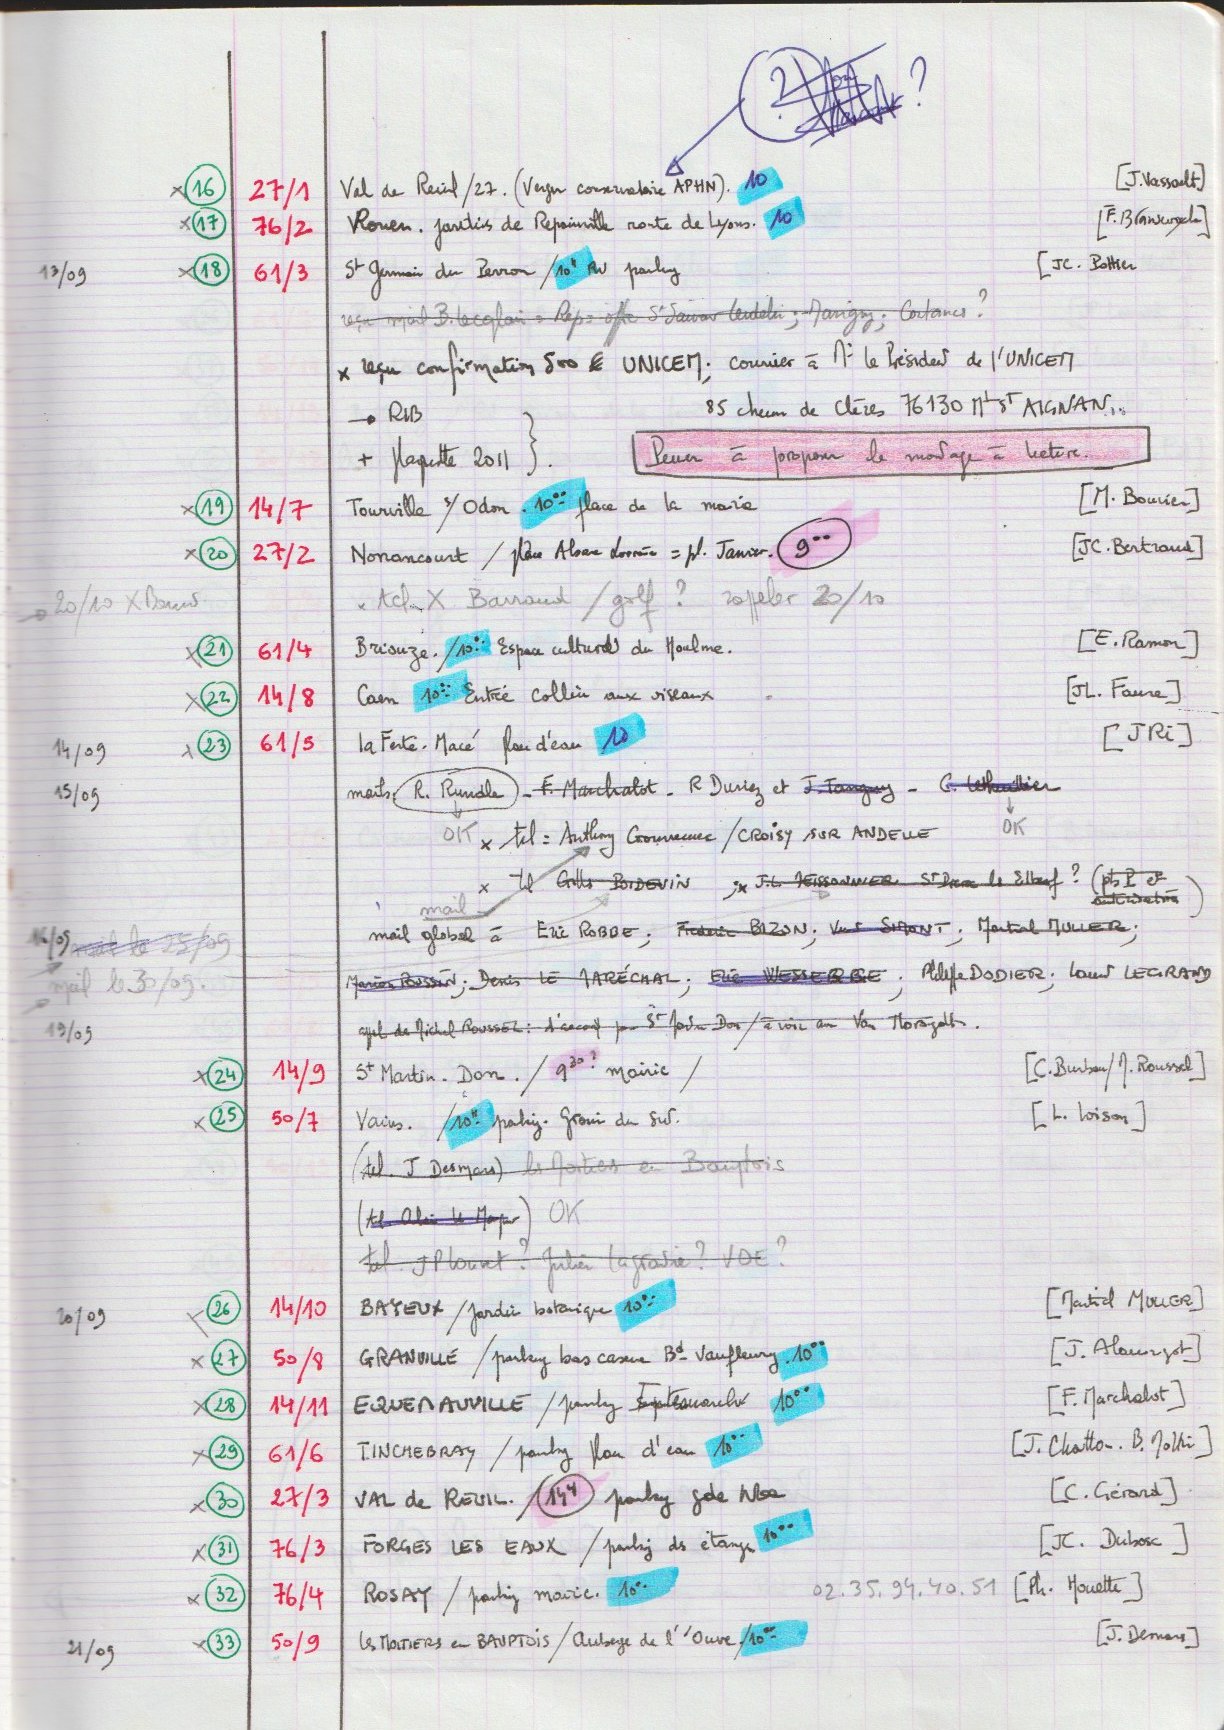 ? ?
x 16 27/1 Val de Reuil /27. (Verger conservatoire APHN). 10 [J. Vassault]
x 17 76/2 Rouen. jardins de Repainville route de Lyons. 10
13/09 x 18 61/3 St Germain du Perron / 10H RV parking [JC. Pottier
reçu mail B. Lecaplain = Rep= St Sauveur Lendelin; Marigny; Coutances?
x reçu confirmation 500 € UNICEM; courrier à Mr le Président de l'UNICEM
→ RIB 85 chemin de Clères 76130 Mt St AIGNAN...
+ plaquette 2011 } . Penser à proposer le montage à lecture.
x 19 14/7 Tourville s/ Odon. 10°° place de la mairie [M. Bouvier]
x 20 27/2 Nonancourt / place Alsace Lorraine = pl. Janvier. 9°° [JC. Bertrand]
→ 20/10 x x Barraud / golf ? rappeler 20/10
x 21 61/4 Briouze. / 10°° Espace culturel du Houlme. [E. Ramon]
x 22 14/8 Caen 10°° Entrée colline aux oiseaux [JL. Faure]
14/09 x 23 61/5 la Ferté-Macé plan d'eau 10 [J Ri]
15/09 mails R. Rundle - F. Marchalot - R Duriez et J. Tanguy - C. Lethuillier
OK x tel = Anthony / CROISY SUR ANDELLE OK
x tel Gilles BOIDEVIN ; x J.L. TEISSONNIER St Pierre les Elbeuf ? (
mail
16/09 mail le 25/09 mail global à Eric ROBBE; Frédéric BIZON; SIMONT; Martial MULLER;
mail le 30/09. ROUSSIN; Denis LE MARÉCHAL; Eric WESSBERGE; Philippe DODIER; Laurent LEGRAND
19/09 appel de Michel ROUSSEL: d'accord pour St Martin Don / à voir
x 24 14/9 St Martin. Don. / 9 30 ? mairie / [C. / M. Roussel]
x 25 50/7 Vains. / 10H parking. Grouin du Sud. [L. Loison]
(tel. J Desmars) les Moitiers en Bauptois
(tel Alain ) OK
tel JP Louvet ? Julien Lagrandie ? VOE ?
20/09 26 14/10 BAYEUX / jardin botanique 10°° [Martial MULLER]
x 27 50/8 GRANVILLE / parking bas caserne Bd Vaufleury. 10°°
x 28 14/11 EQUEMAUVILLE / parking 10°° [F. Marchalot]
x 29 61/6 TINCHEBRAY / parking plan d'eau 10°°
x 30 27/3 VAL de REUIL. / 14H parking gde [C. Gérard]
x 31 76/3 FORGES LES EAUX / parking des étangs 10°° [JC. Dubosc]
x 32 76/4 ROSAY / parking mairie. 10°° 02.35.94.40.51 [Ph. Houette]
21/09 x 33 50/9 les MOITIERS en BAUPTOIS / Auberge de l'Ouve / 10°° [J. Desmars]